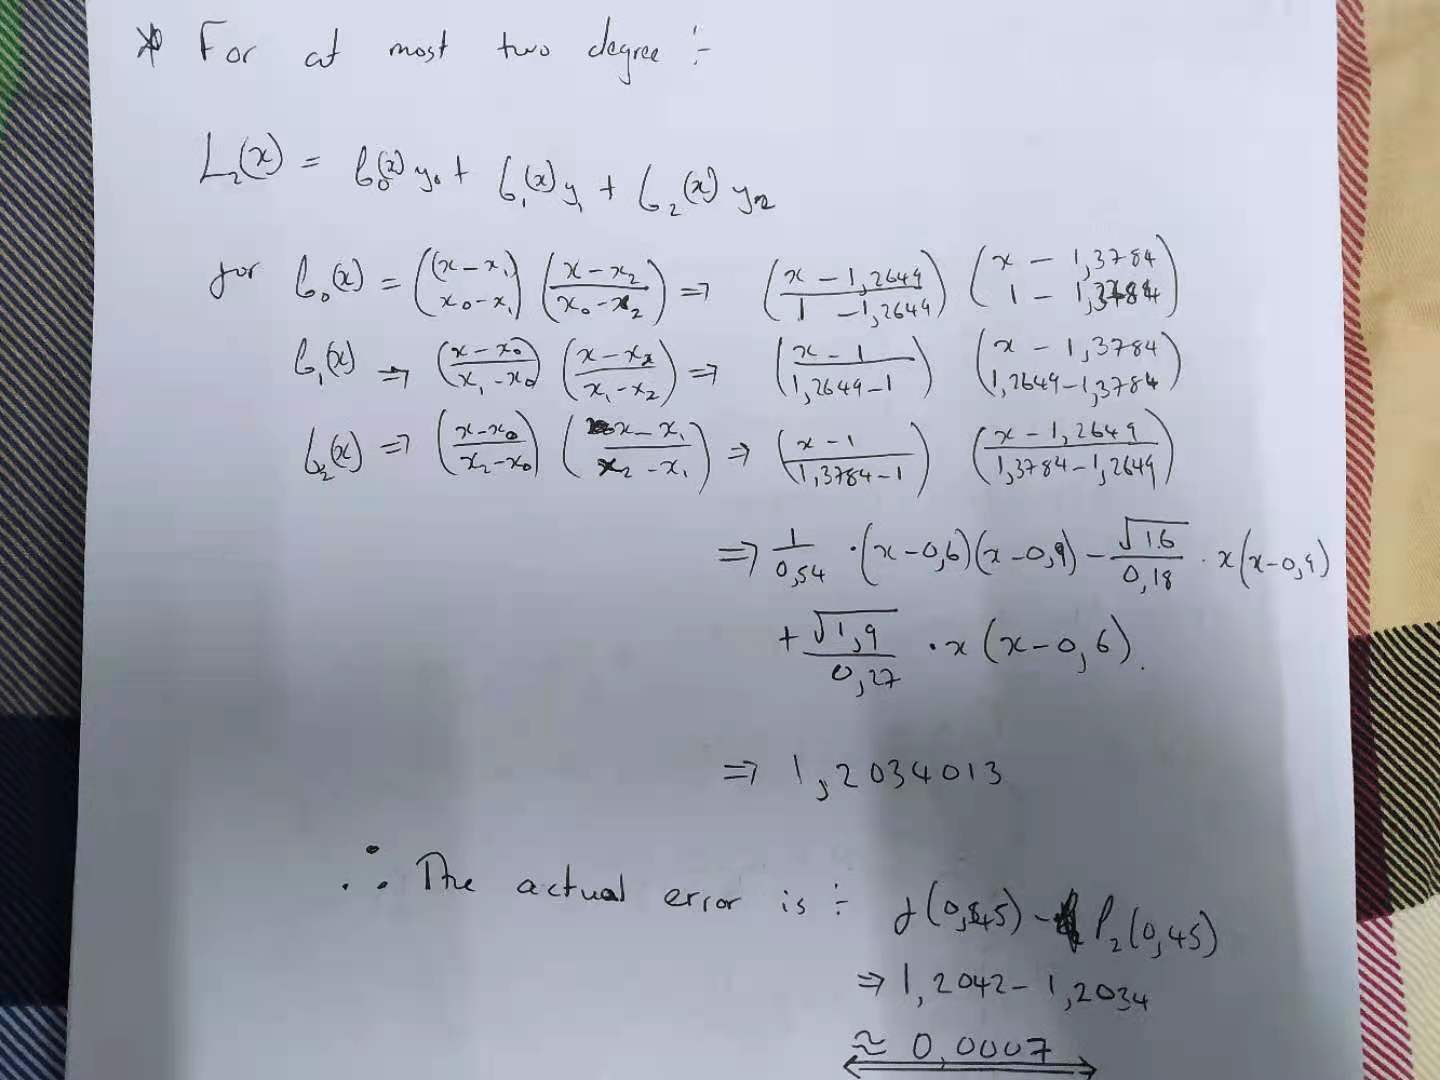 * For at most two degree :-
L₂(x) = ℓ₀(x) y₀ + ℓ₁(x) y₁ + ℓ₂(x) y₂
for ℓ₀(x) = ((x-x₁)/(x₀-x₁)) ((x-x₂)/(x₀-x₂)) => ((x-1,2649)/(1-1,2649)) ((x-1,3784)/(1-1,3784))
ℓ₁(x) => ((x-x₀)/(x₁-x₀)) ((x-x₂)/(x₁-x₂)) => ((x-1)/(1,2649-1)) ((x-1,3784)/(1,2649-1,3784))
ℓ₂(x) => ((x-x₀)/(x₂-x₀)) ((x-x₁)/(x₂-x₁)) => ((x-1)/(1,3784-1)) ((x-1,2649)/(1,3784-1,2649))
=> 1/0,54 · (x-0,6)(x-0,9) - √1.6/0,18 · x(x-0,9)
+ √1,9/0,27 · x(x-0,6).
=> 1,2034013
∴ The actual error is :- f(0,45) - P₂(0,45)
=> 1,2042 - 1,2034
≈ 0,0007